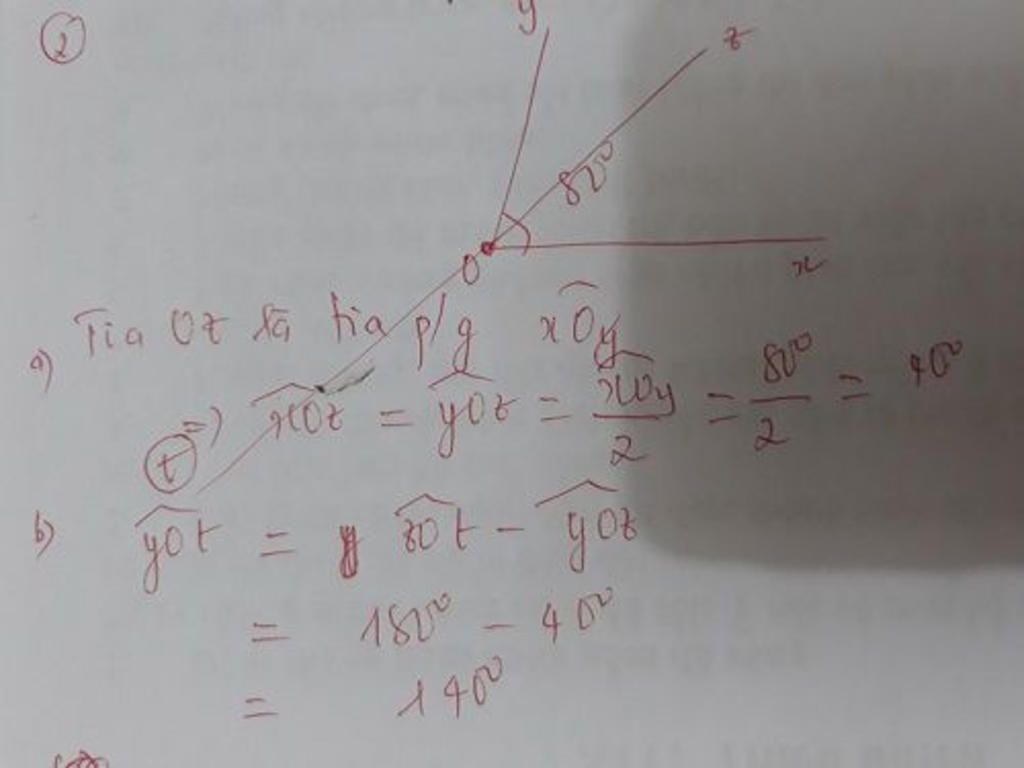 2
y
z
80°
O
x
a) Tia Oz là tia p/g xOy
=> xOz = yOz = xOy/2 = 80°/2 = 40°
t
b) yOt = zOt - yOz
= 180° - 40°
= 140°